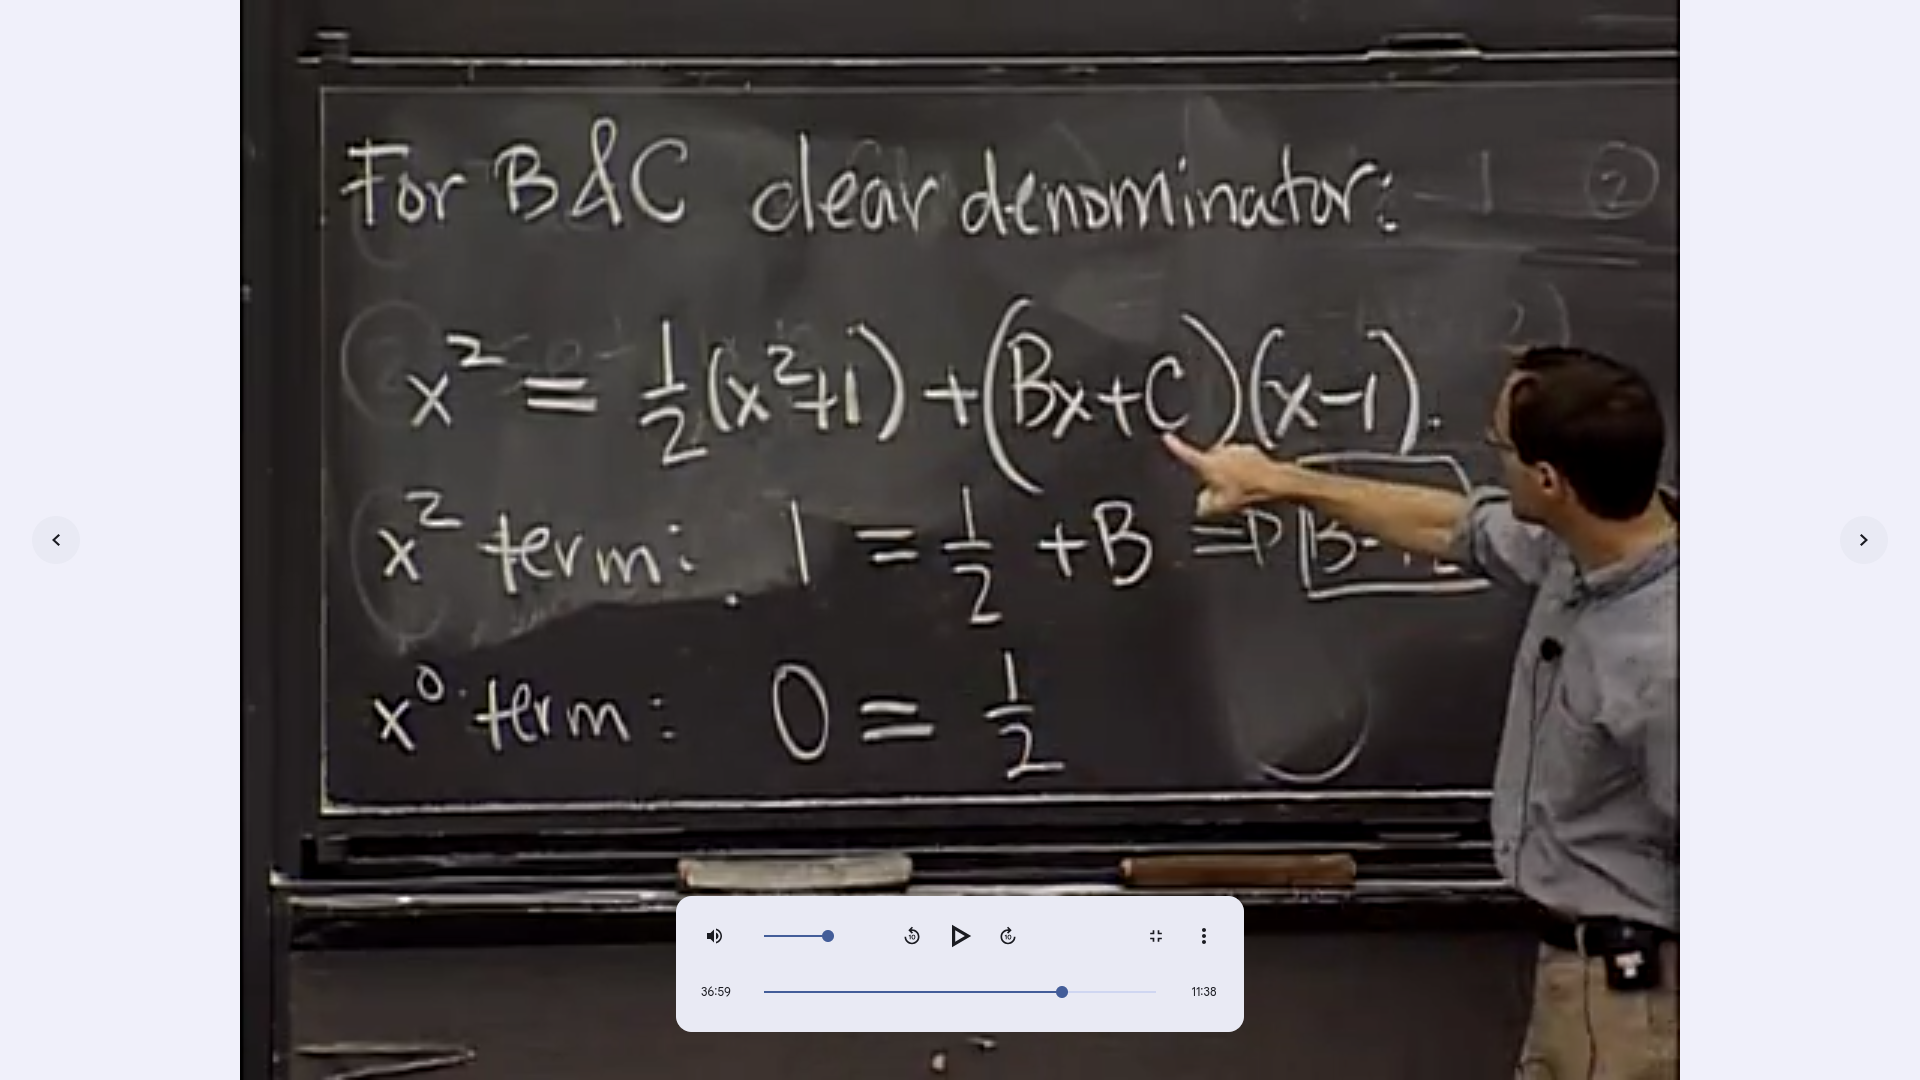 For B & C clear denominator:
x² = 1/2 (x²+1) + (Bx+C)(x-1).
x² term: 1 = 1/2 + B ⇒ B =
x⁰ term: 0 = 1/2
2
10
10
36:59
11:38